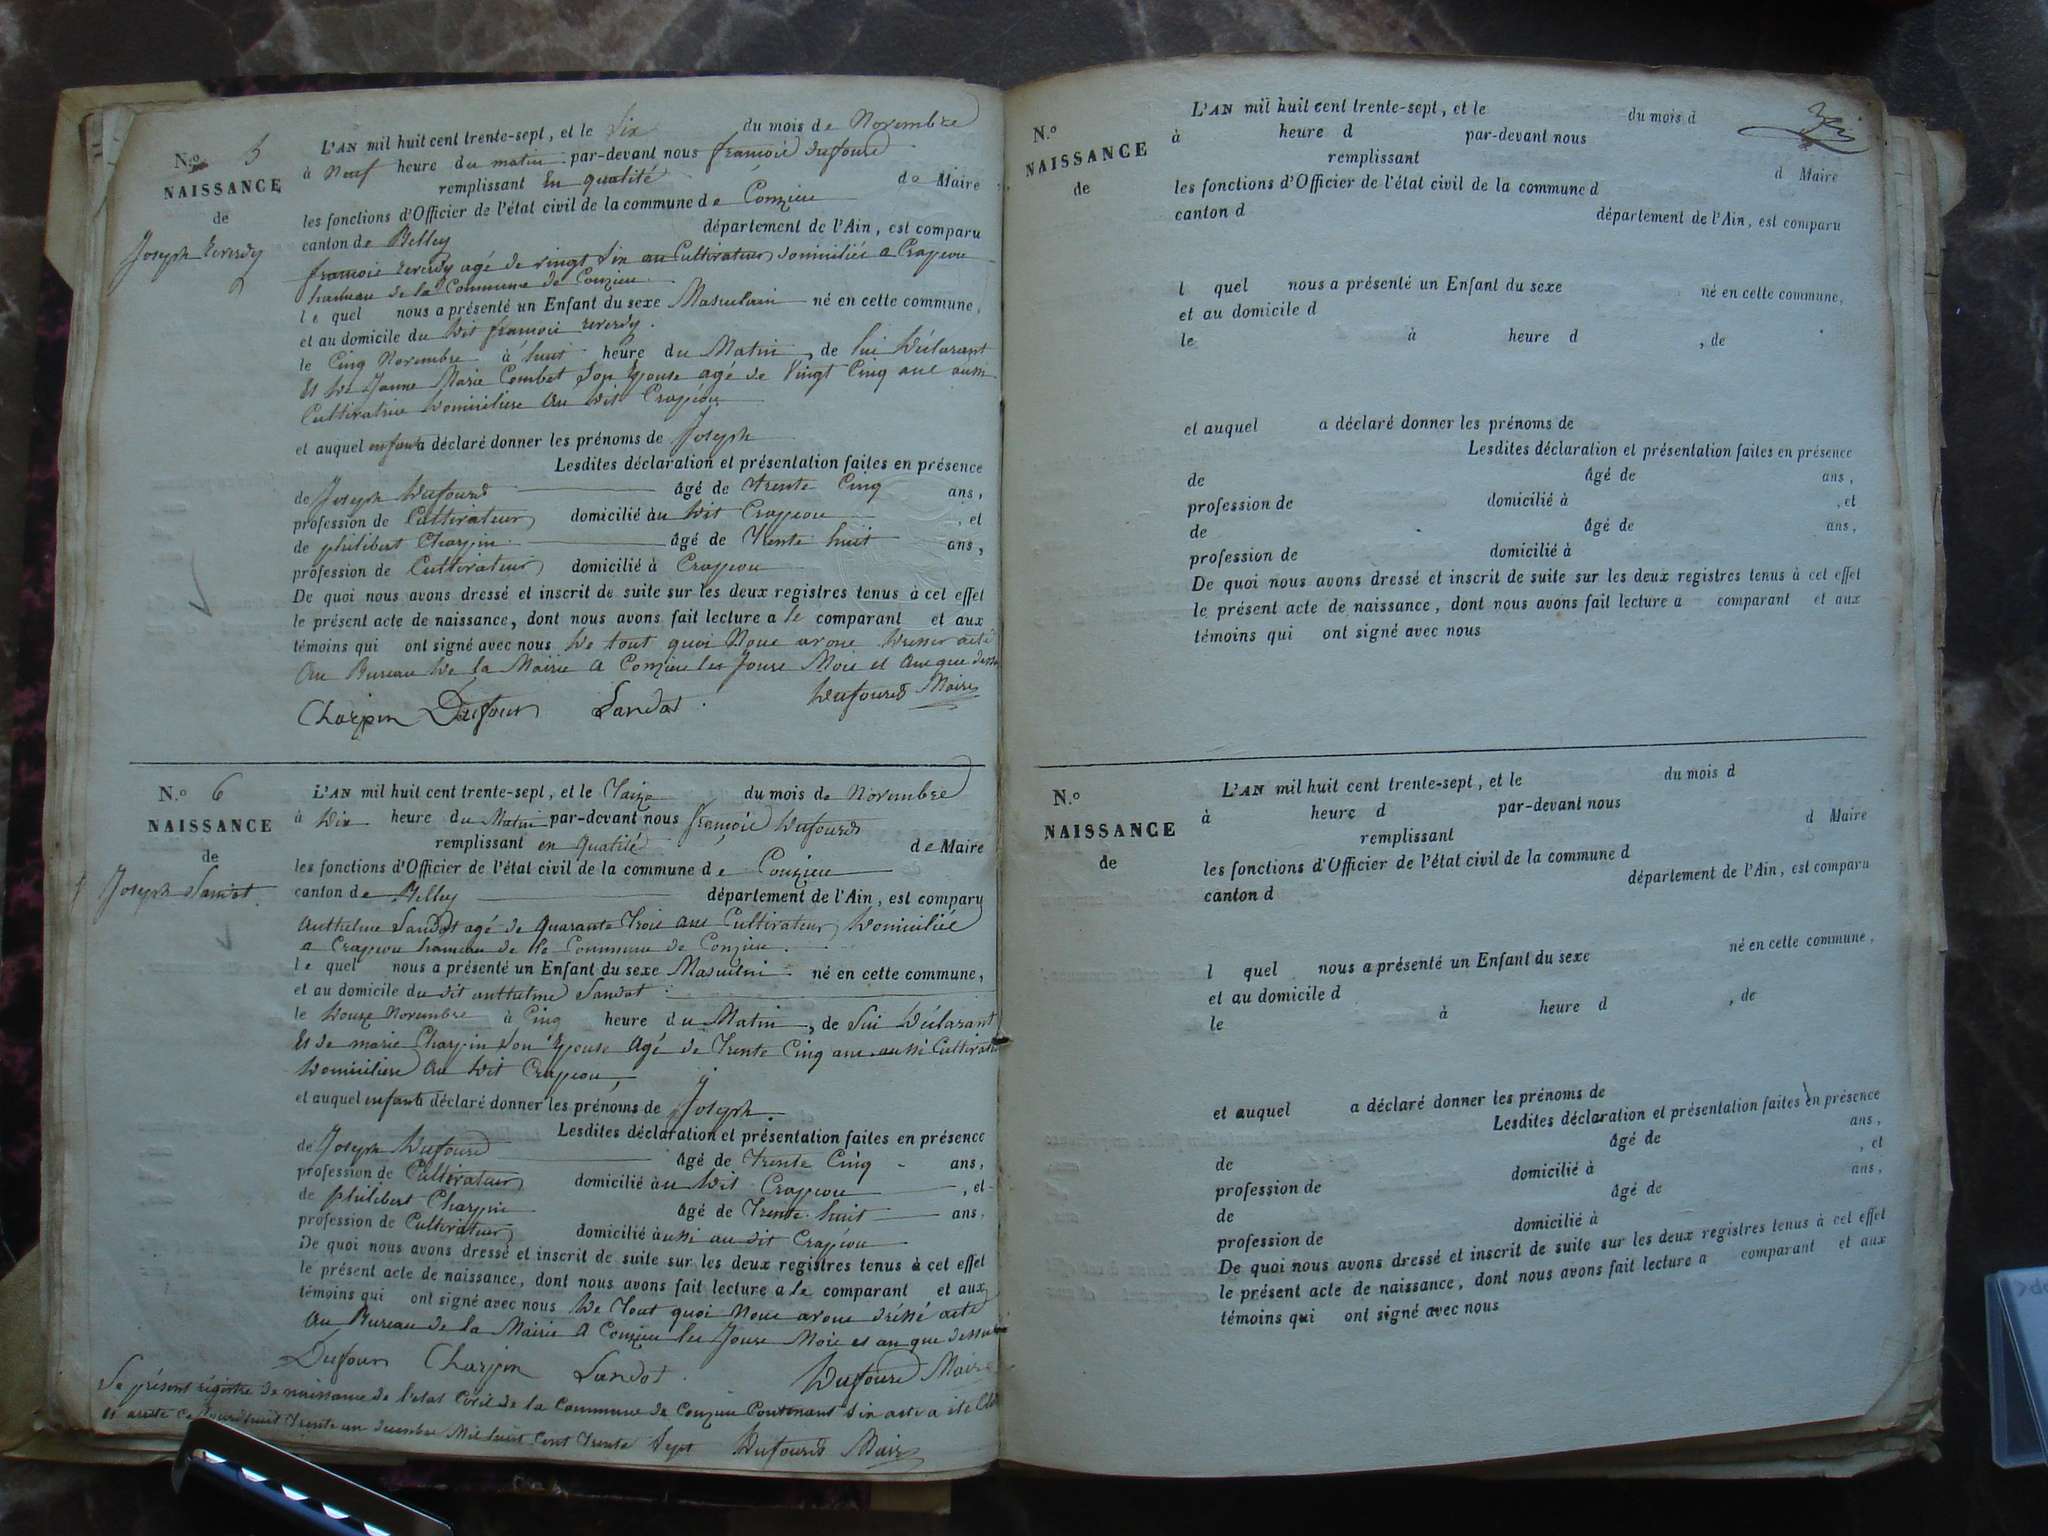 N.o 5
NAISSANCE
de
Joseph Reverdy
L'AN mil huit cent trente-sept, et le Six du mois de Novembre
à Neuf heure du matin par-devant nous françois Dufourd
remplissant En qualité de Maire
les fonctions d'Officier de l'état civil de la commune de Conzieu
canton de Belley département de l'Ain, est comparu
françois Reverdy agé de vingt Six ans Cultivateur domiciliée a Crapeou
hameau de la Commune de Conzieu
le quel nous a présenté un Enfant du sexe Masculin né en cette commune,
et au domicile du dit françois Reverdy.
le Cinq Novembre à huit heure du Matin, de lui Déclarant
Et De Jeanne Marie Combet Son Epouse agé de Vingt Cinq ans aussi
Cultivatrice Domiciliere Au dit Crapeou
et auquel enfant a déclaré donner les prénoms de Joseph
Lesdites déclaration et présentation faites en présence
de Joseph Dufourd âgé de trente Cinq ans,
profession de Cultivateur domicilié au dit Crapeou, et
de philibert Charpin âgé de Trente huit ans,
profession de Cultivateur domicilié à Crapeou
De quoi nous avons dressé et inscrit de suite sur les deux registres tenus à cet effet
le présent acte de naissance, dont nous avons fait lecture a le comparant et aux
témoins qui ont signé avec nous De tout quoi Nous avons Dresser acte
Au Bureau De la Mairie A Conzieu les Jours Mois et An que dessus
Charpin Dufour Landot Dufourd Maire
N.o 6
NAISSANCE
de
Joseph Landot.
L'AN mil huit cent trente-sept, et le Traize du mois de Novembre
à Dix heure du Matin par-devant nous françois Dufourd
remplissant en Qualité de Maire
les fonctions d'Officier de l'état civil de la commune de Conzieu
canton de Belley département de l'Ain, est comparu
Anthelme Landot agé de Quarante Trois ans Cultivateur Domiciliée
a Crapeou hameau de la Commune de Conzieu.
le quel nous a présenté un Enfant du sexe Masculin né en cette commune,
et au domicile du dit anthelme Landot
le Douze Novembre à Cinq heure du Matin, de Lui Déclarant
Et de marie Charpin Son Epouse Agé de Trente Cinq ans aussi
Domiciliere Au dit Crapeou,
et auquel enfant déclaré donner les prénoms de Joseph.
Lesdites déclaration et présentation faites en présence
de Joseph Dufourd âgé de trente Cinq ans,
profession de Cultivateur domicilié au dit Crapeou, et
de philibert Charpin âgé de Trente huit ans,
profession de Cultivateur domicilié aussi au dit Crapeou
De quoi nous avons dressé et inscrit de suite sur les deux registres tenus à cet effet
le présent acte de naissance, dont nous avons fait lecture a le comparant et aux
témoins qui ont signé avec nous De Tout quoi Nous avons dréssé acte
Au Bureau de la Mairie A Conzieu les Jours Mois et an que dessus
Dufour Charpin Landot. Dufourd Maire
Le présent régistre de naissance de l'etat Civil de la Commune de Conzieu Contenant Six actes a été
et areté Ce Jourd'huit Trente un decembre Mil huit Cent Trente Sept Dufourd Maire
N.o
NAISSANCE
de
L'AN mil huit cent trente-sept, et le du mois d
à heure d par-devant nous
remplissant d Maire
les fonctions d'Officier de l'état civil de la commune d
canton d département de l'Ain, est comparu
l quel nous a présenté un Enfant du sexe né en cette commune,
et au domicile d
le à heure d , de
et auquel a déclaré donner les prénoms de
Lesdites déclaration et présentation faites en présence
de âgé de ans,
profession de domicilié à , et
de âgé de ans,
profession de domicilié à
De quoi nous avons dressé et inscrit de suite sur les deux registres tenus à cet effet
le présent acte de naissance, dont nous avons fait lecture a comparant et aux
témoins qui ont signé avec nous
N.o
NAISSANCE
de
L'AN mil huit cent trente-sept, et le du mois d
à heure d par-devant nous
remplissant d Maire
les fonctions d'Officier de l'état civil de la commune d
canton d département de l'Ain, est comparu
l quel nous a présenté un Enfant du sexe né en cette commune,
et au domicile d
le à heure d , de
et auquel a déclaré donner les prénoms de
Lesdites déclaration et présentation faites en présence
de âgé de ans,
profession de domicilié à , et
de âgé de ans,
profession de domicilié à
De quoi nous avons dressé et inscrit de suite sur les deux registres tenus à cet effet
le présent acte de naissance, dont nous avons fait lecture a comparant et aux
témoins qui ont signé avec nous